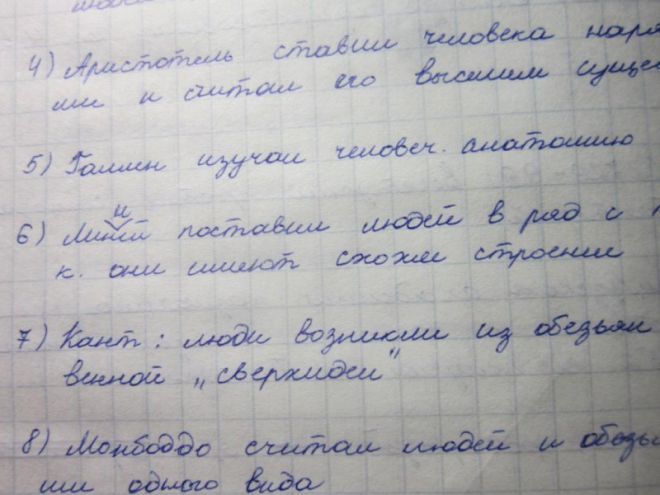 4) Аристотель ставил человека наря
ми и считал его высшим суще
5) Гален изучал человеч. анатомию
6) Линней поставил людей в ряд с
к. они имеют схожее строение
7) Кант: люди возникли из обезьян
венной „сверхидеи"
8) Монбоддо считал людей и обезья
ми одного вида